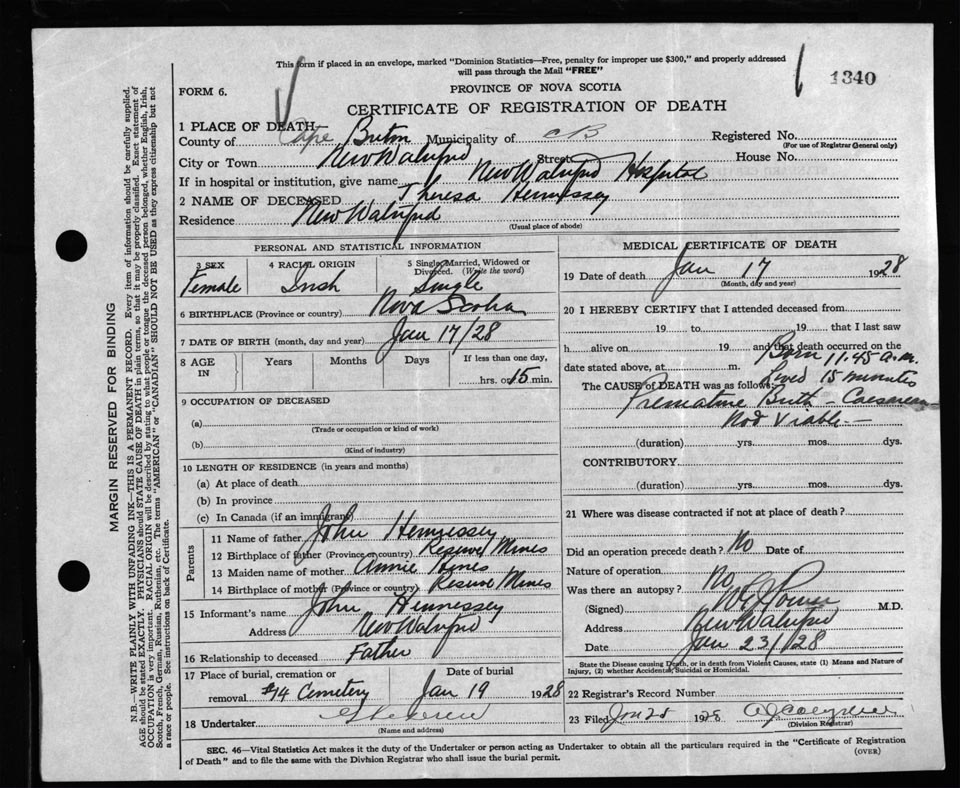 This form if placed in an envelope, marked "Dominion Statistics—Free, penalty for improper use $300," and properly addressed
will pass through the Mail "FREE"
1340
FORM 6.
PROVINCE OF NOVA SCOTIA
CERTIFICATE OF REGISTRATION OF DEATH
1 PLACE OF DEATH
County of Cape Breton Municipality of CB Registered No.
(For use of Registrar General only)
City or Town New Waterford Street House No.
If in hospital or institution, give name New Waterford Hospital
2 NAME OF DECEASED Theresa Hennessey
Residence New Waterford
(Usual place of abode)
PERSONAL AND STATISTICAL INFORMATION
3 SEX 4 RACIAL ORIGIN 5 Single, Married, Widowed or
Divorced. (Write the word)
Female Irish Single
6 BIRTHPLACE (Province or country) Nova Scotia
7 DATE OF BIRTH (month, day and year) Jan 17/28
8 AGE IN Years Months Days If less than one day,
hrs. or 15 min.
9 OCCUPATION OF DECEASED
(a)
(Trade or occupation or kind of work)
(b)
(Kind of industry)
10 LENGTH OF RESIDENCE (in years and months)
(a) At place of death
(b) In province
(c) In Canada (if an immigrant)
Parents
11 Name of father John Hennessey
12 Birthplace of father (Province or country) Reserve Mines
13 Maiden name of mother Annie Hines
14 Birthplace of mother (Province or country) Reserve Mines
15 Informant's name John Hennessey
Address New Waterford
16 Relationship to deceased Father
17 Place of burial, cremation or Date of burial
removal #14 Cemetery Jan 19 1928
18 Undertaker
(Name and address)
MEDICAL CERTIFICATE OF DEATH
19 Date of death Jan 17 1928
(Month, day and year)
20 I HEREBY CERTIFY that I attended deceased from
19 to 19 that I last saw
h alive on 19 and that death occurred on the
date stated above, at m. Born 11.45 a.m.
Lived 15 minutes
The CAUSE of DEATH was as follows:
Premature Birth - Caesarean
Not Viable -
(duration) yrs. mos. dys.
CONTRIBUTORY
(duration) yrs. mos. dys.
21 Where was disease contracted if not at place of death?
Did an operation precede death? No Date of
Nature of operation
Was there an autopsy? No
(Signed) M.D.
Address New Waterford
Date Jan 23/28
State the Disease causing Death, or in death from Violent Causes, state (1) Means and Nature of
Injury, (2) whether Accidental, Suicidal or Homicidal.
22 Registrar's Record Number
23 Filed Jan 28 1928
(Division Registrar)
SEC. 46—Vital Statistics Act makes it the duty of the Undertaker or person acting as Undertaker to obtain all the particulars required in the "Certificate of Registration
of Death" and to file the same with the Division Registrar who shall issue the burial permit.
(OVER)
MARGIN RESERVED FOR BINDING
N.B.—WRITE PLAINLY WITH UNFADING INK—THIS IS A PERMANENT RECORD. Every item of information should be carefully supplied.
AGE should be stated EXACTLY. PHYSICIANS should STATE CAUSE OF DEATH in plain terms, so that it may be properly classified. Exact statement of
OCCUPATION is very important. RACIAL ORIGIN will be described by stating to what people or tongue the deceased person belonged, whether English, Irish,
Scotch, French, German, Russian, Ruthenian, etc. The terms "AMERICAN" or "CANADIAN" SHOULD NOT BE USED as they express citizenship but not
a race or people. See instructions on back of Certificate.